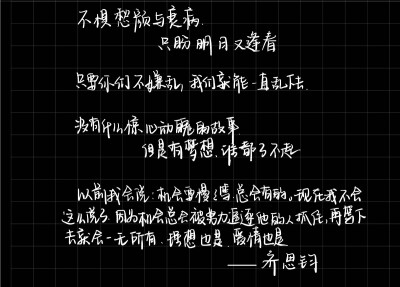 不惧愁颜与衰病
只盼明日又逢春
只要你们不嫌乱,我们就能一直乱下去.
没有什么惊心动魄的故事
但是有梦想.谁都了不起
以前我会说:机会要慢慢等总会有的。现在我不会
这么说了.因为机会总会被努力追逐他的人抓住,再等下
去就会一无所有.理想也是.爱情也是
——齐思钧